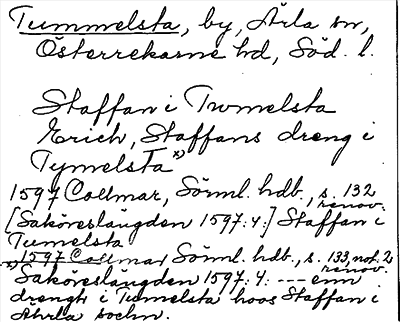 Tummelsta, by, Ärla sn,
Österrekarne hd, Söd. l.
Staffan i Twmelsta
Erich, Staffans dreng i
Tymelsta x)
1597 Collmar, Sörml. hdb., s. 132
renov.
[Saköreslängden 1597:4:] Staffan i
Tumelsta
x) 1597 Collmar Sörml. hdb., s. 133, not. 2
renov.
Saköreslängden 1597:4: --- enn
drengh i Tumelsta hoos Staffan i
Ahrla sochn.